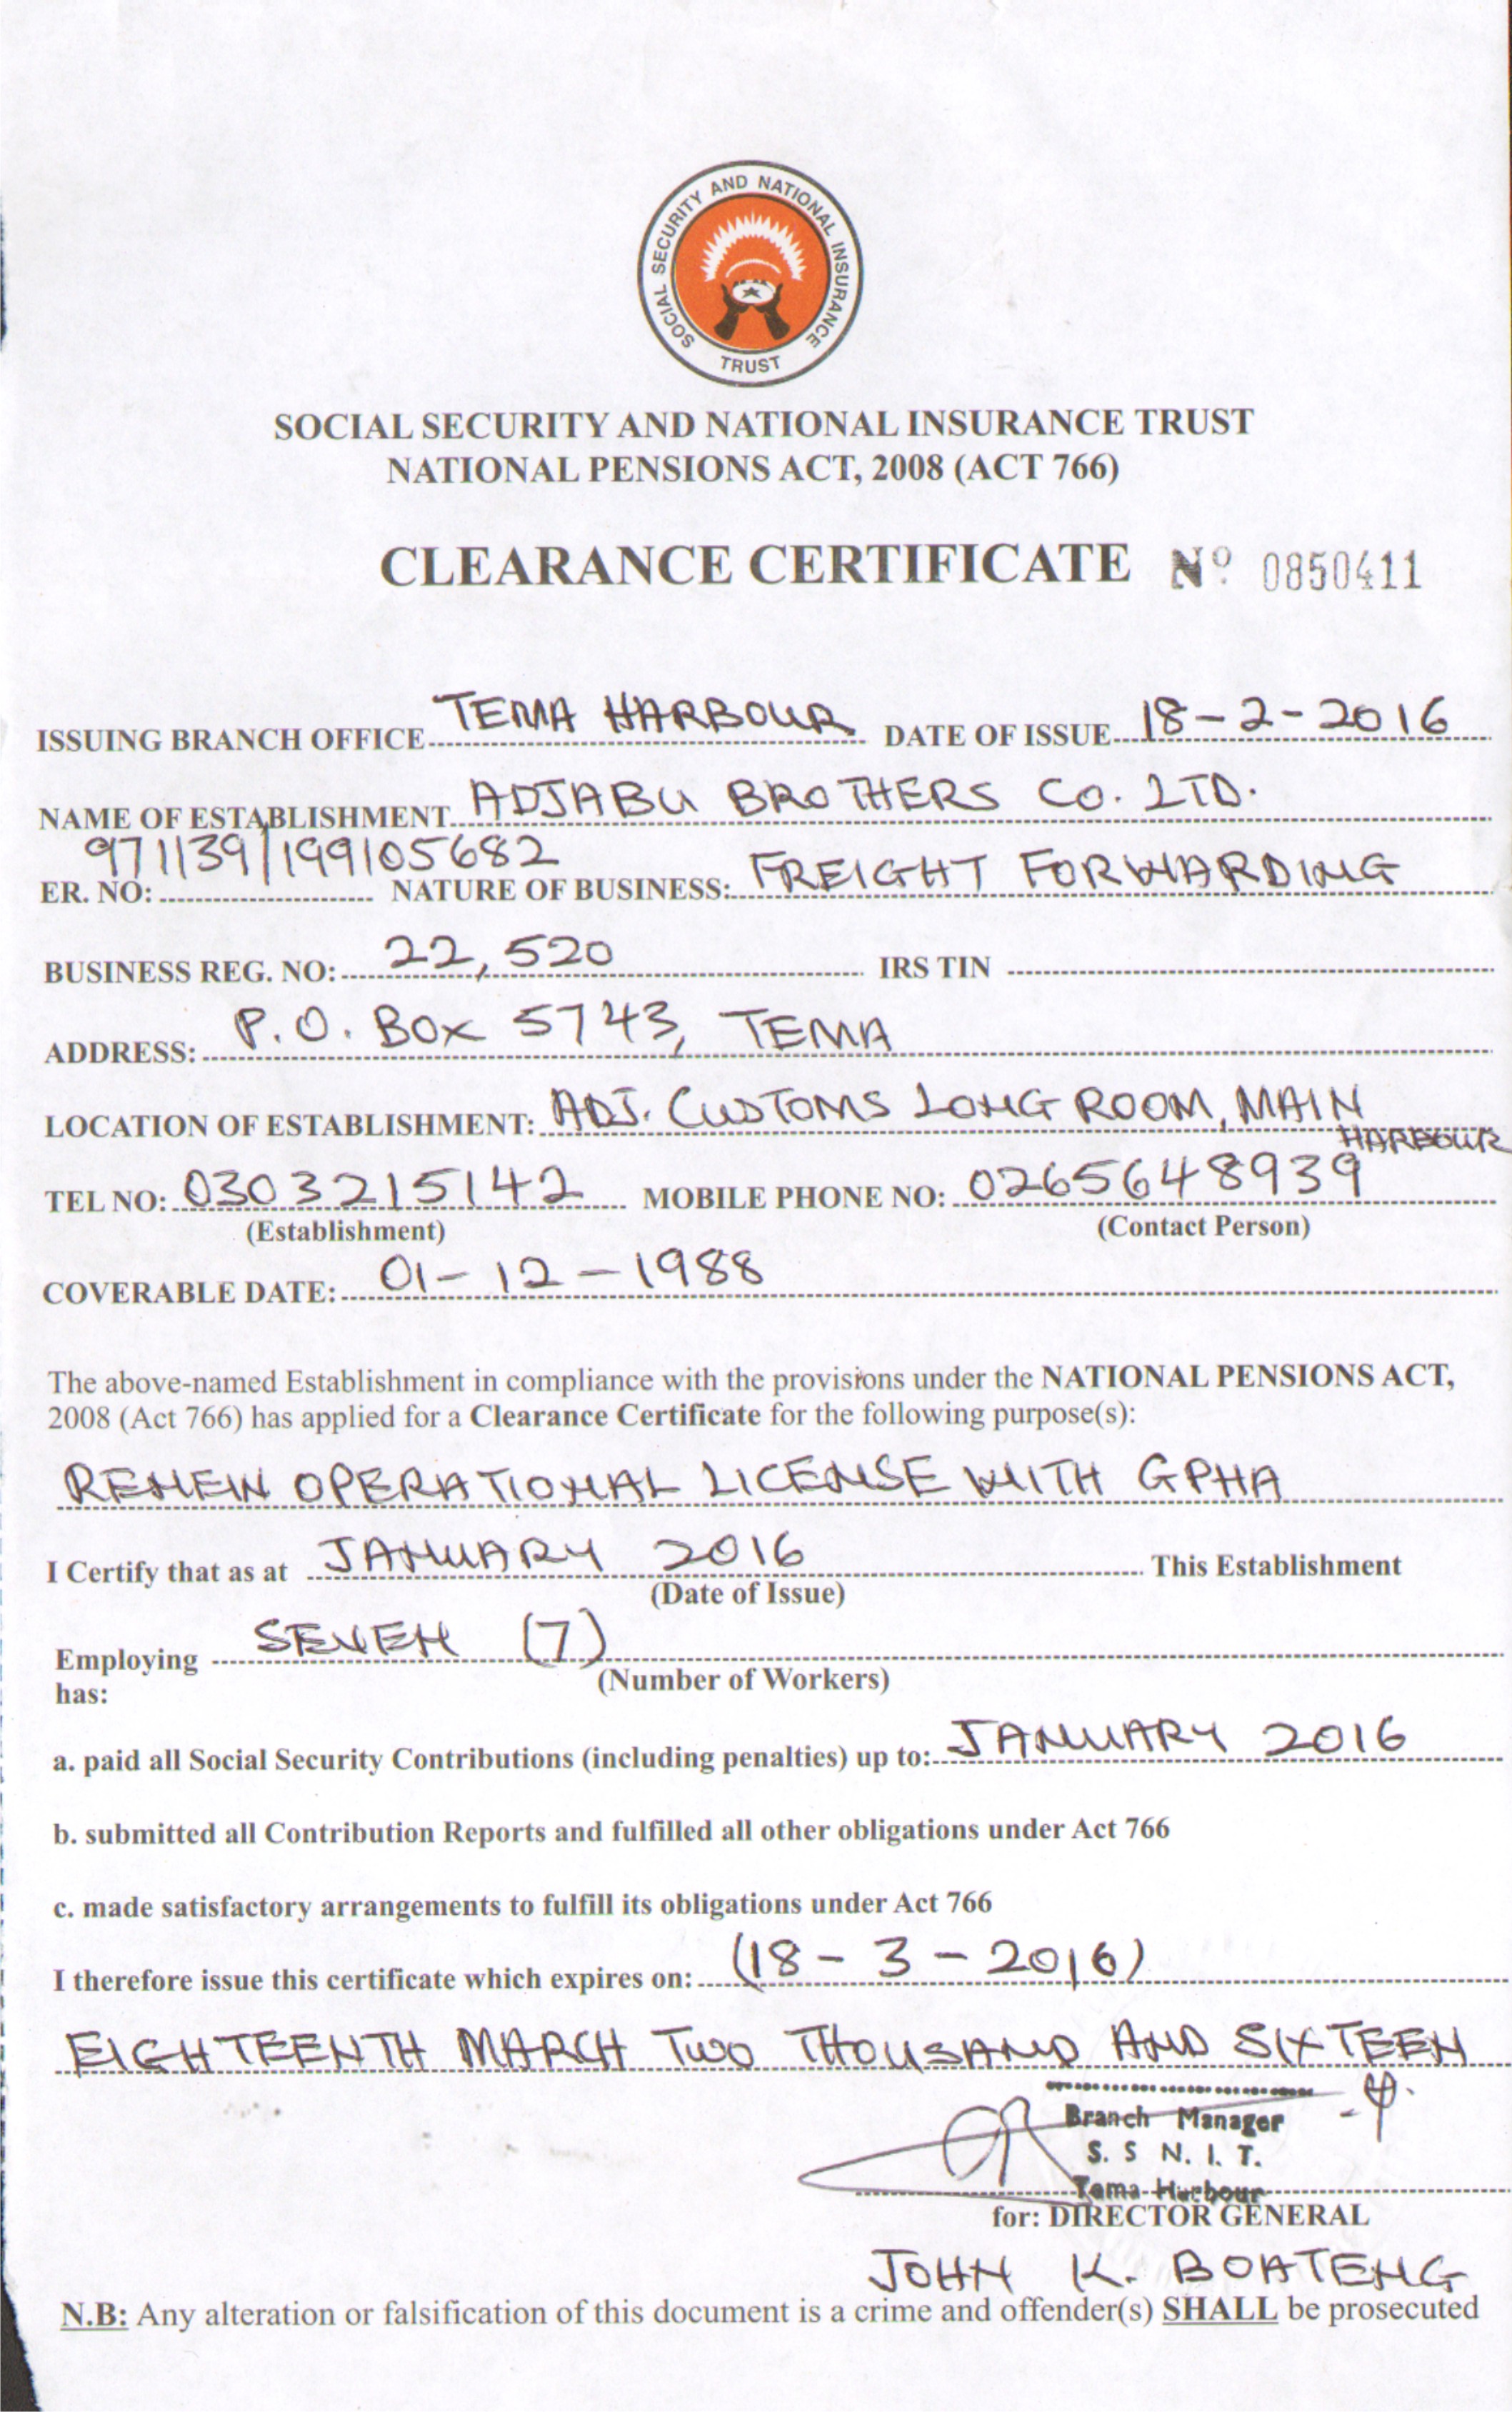 SOCIAL SECURITY AND NATIONAL INSURANCE TRUST
SOCIAL SECURITY AND NATIONAL INSURANCE TRUST
NATIONAL PENSIONS ACT, 2008 (ACT 766)
CLEARANCE CERTIFICATE Nº 0850411
ISSUING BRANCH OFFICE TEMA HARBOUR DATE OF ISSUE 18-2-2016
NAME OF ESTABLISHMENT ADJABU BROTHERS CO. LTD.
ER. NO: 971139/199105682 NATURE OF BUSINESS: FREIGHT FORWARDING
BUSINESS REG. NO: 22,520 IRS TIN
ADDRESS: P.O. BOX 5743, TEMA
LOCATION OF ESTABLISHMENT: ADJ. CUSTOMS LONG ROOM, MAIN
HARBOUR
TEL NO: 0303215142 MOBILE PHONE NO: 0265648939
(Establishment) (Contact Person)
COVERABLE DATE: 01-12-1988
The above-named Establishment in compliance with the provisions under the NATIONAL PENSIONS ACT,
2008 (Act 766) has applied for a Clearance Certificate for the following purpose(s):
RENEW OPERATIONAL LICENSE WITH GPHA
I Certify that as at JANUARY 2016 This Establishment
(Date of Issue)
Employing SEVEN (7)
(Number of Workers)
has:
a. paid all Social Security Contributions (including penalties) up to: JANUARY 2016
b. submitted all Contribution Reports and fulfilled all other obligations under Act 766
c. made satisfactory arrangements to fulfill its obligations under Act 766
I therefore issue this certificate which expires on: (18-3-2016)
EIGHTEENTH MARCH TWO THOUSAND AND SIXTEEN
Branch Manager
S. S N. I. T.
Tema Harbour
for: DIRECTOR GENERAL
JOHN K. BOATENG
N.B: Any alteration or falsification of this document is a crime and offender(s) SHALL be prosecuted